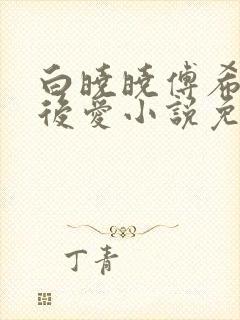 白曉曉傅希
後愛小説免
丁青